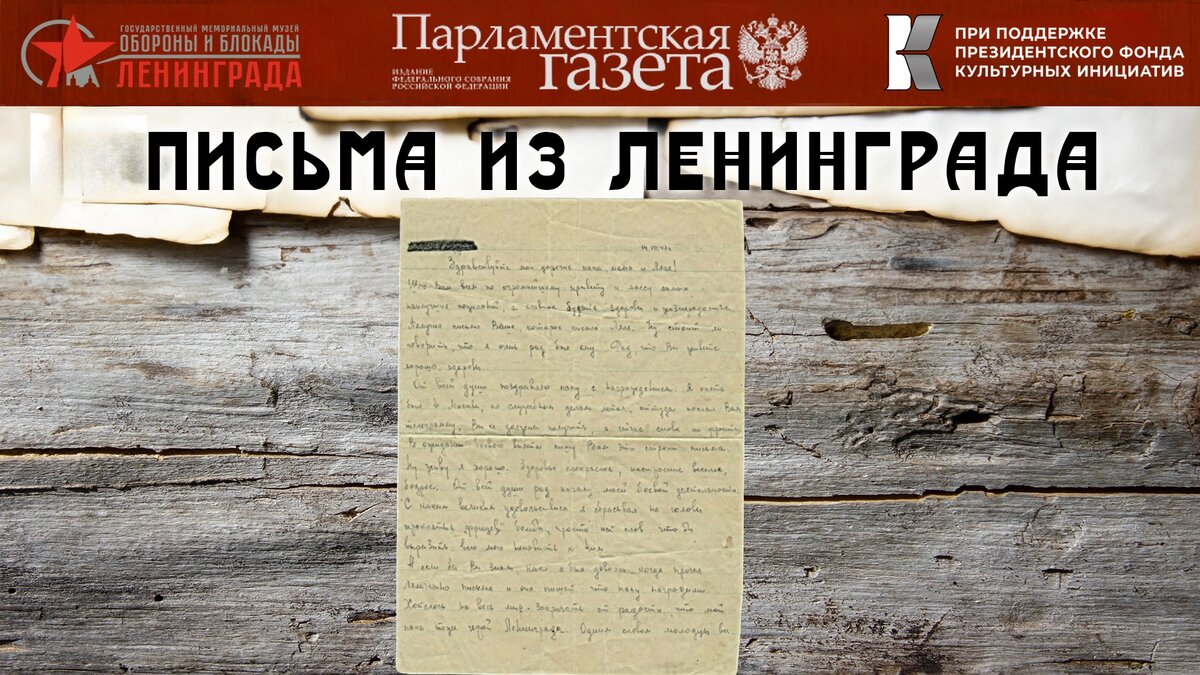 ГОСУДАРСТВЕННЫЙ МЕМОРИАЛЬНЫЙ МУЗЕЙ
ОБОРОНЫ И БЛОКАДЫ
ЛЕНИНГРАДА
Парламентская
газета
ИЗДАНИЕ
ФЕДЕРАЛЬНОГО СОБРАНИЯ
РОССИЙСКОЙ ФЕДЕРАЦИИ
ПРИ ПОДДЕРЖКЕ
ПРЕЗИДЕНТСКОГО ФОНДА
КУЛЬТУРНЫХ ИНИЦИАТИВ
ПИСЬМА ИЗ ЛЕНИНГРАДА
Здравствуйте мои дорогие папа, мама и Ляля!
Шлю Вам всем по огромнейшему привету и массу самых
наилучших пожеланий, а главное будьте здоровы и
Получил письмо Ваше, которое писала Ляля. Ну стоит ли
говорить, что я очень рад был ему. Рад, что Вы живете
хорошо, здоровы.
От всей души поздравляю папу с награждением. Я опять
был в Москве, по служебным делам летал, оттуда послал Вам
телеграмму, Вы ее должны получить, а сейчас снова на фронте.
В ожидании боевого вылета пишу Вам эти строки письма.
Ну живу я хорошо. Здоровье прекрасное, настроение веселое,
бодрое. От всей души рад началу моей боевой деятельности.
С каким великим удовольствием я сбрасывал на головы
проклятых фрицев бомбы, просто нет слов что бы
выразить всю мою ненависть к ним.
А если бы Вы знали как я был доволен, когда прочел
Лялечкино письмо и она пишет что папу наградили.
Хотелось на весь мир закричать от радости, что мой
папа тоже герой Ленинграда. Одним словом молодцы Вы